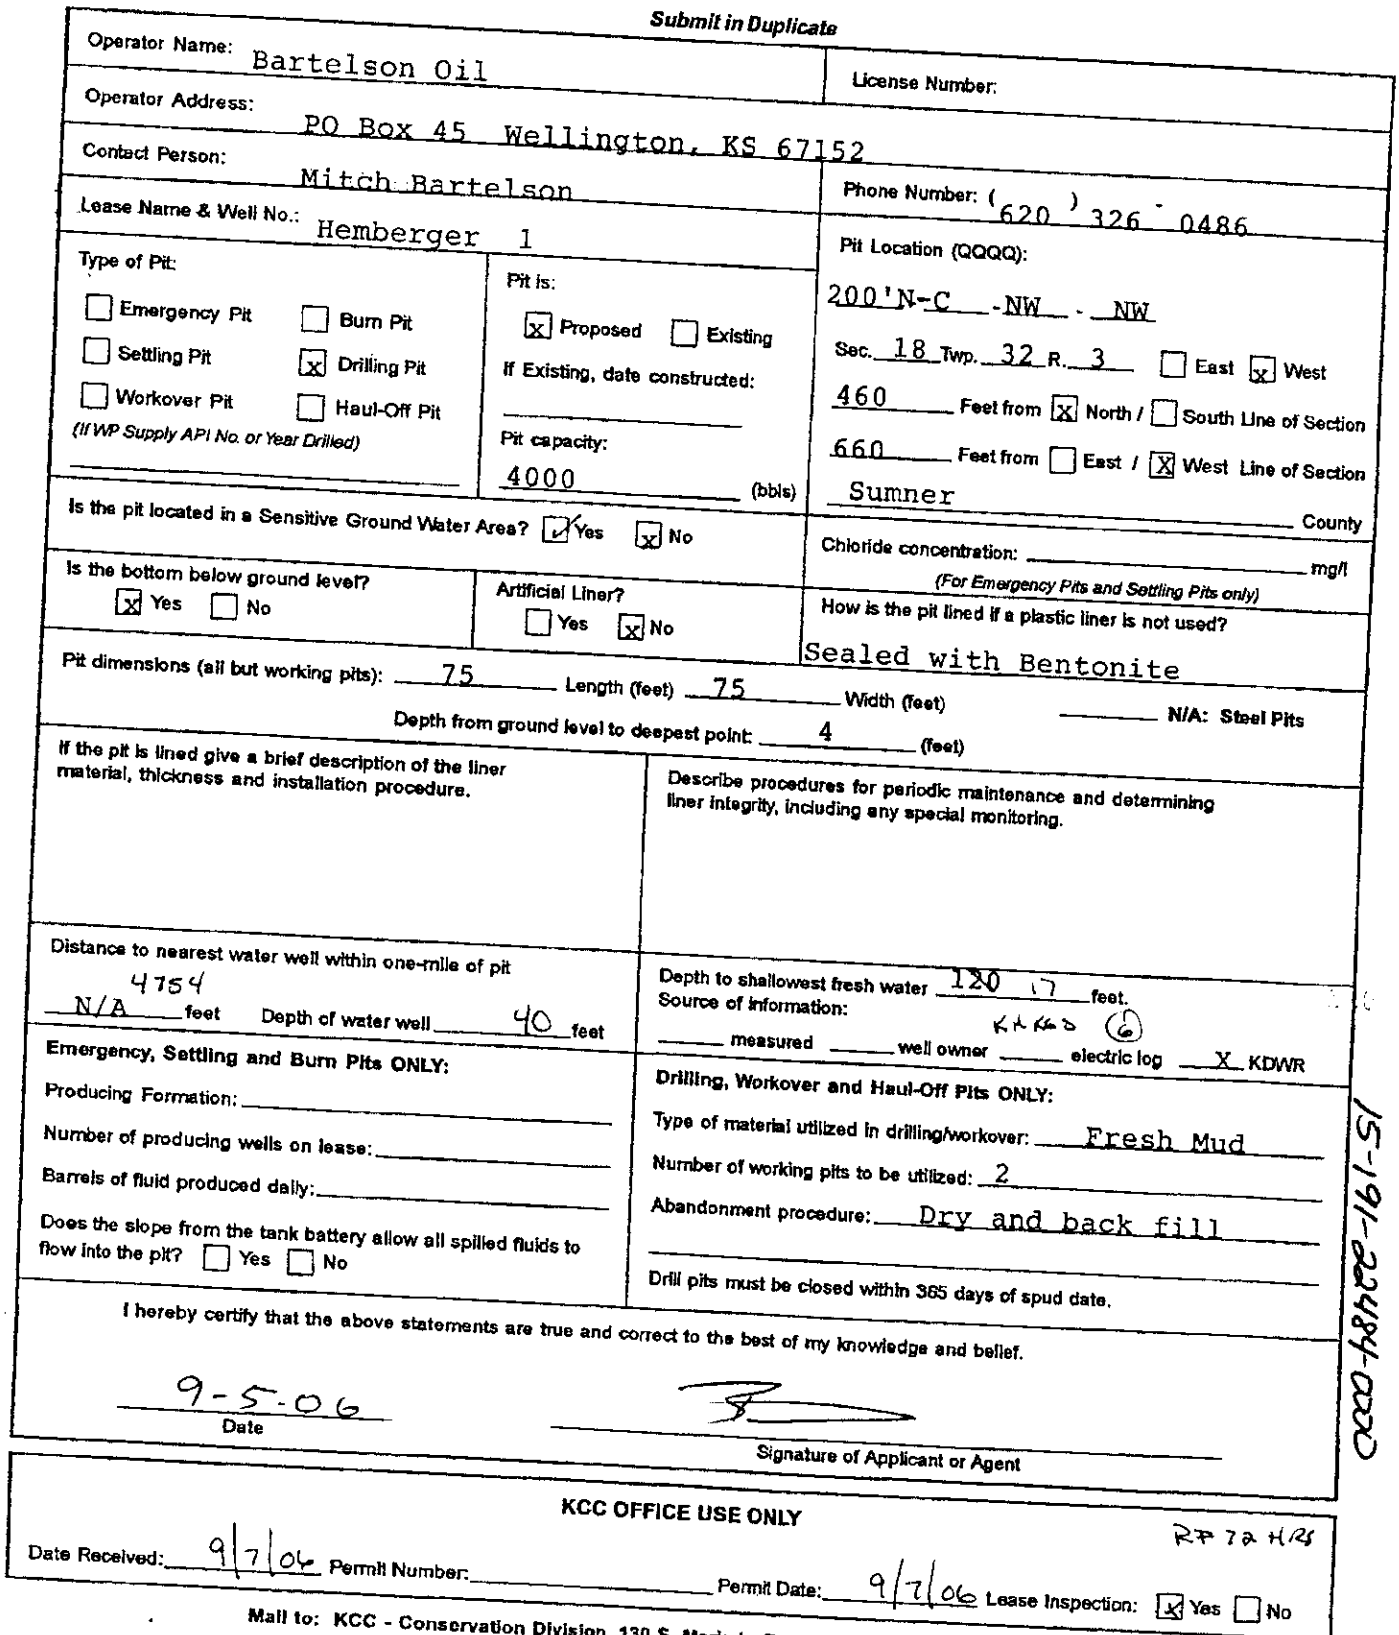 Submit in Duplicate
Operator Name: Bartelson Oil
License Number:
Operator Address: PO Box 45 Wellington, KS 67152
Contact Person: Mitch Bartelson
Phone Number: ( 620 ) 326 - 0486
Lease Name & Well No.: Hemberger 1
Pit Location (QQQQ):
200'N-C - NW - NW
Type of Pit:
Emergency Pit Burn Pit
Settling Pit x Drilling Pit
Workover Pit Haul-Off Pit
(If WP Supply API No. or Year Drilled)
Pit is:
x Proposed Existing
If Existing, date constructed:
Pit capacity:
4000 (bbls)
Sec. 18 Twp. 32 R. 3 East x West
460 Feet from X North / South Line of Section
660 Feet from East / X West Line of Section
Sumner County
Is the pit located in a Sensitive Ground Water Area? ✓ Yes x No
Chloride concentration: mg/l
(For Emergency Pits and Settling Pits only)
Is the bottom below ground level?
x Yes No
Artificial Liner?
Yes x No
How is the pit lined if a plastic liner is not used?
Sealed with Bentonite
Pit dimensions (all but working pits): 75 Length (feet) 75 Width (feet) N/A: Steel Pits
Depth from ground level to deepest point: 4 (feet)
If the pit is lined give a brief description of the liner
material, thickness and installation procedure.
Describe procedures for periodic maintenance and determining
liner integrity, including any special monitoring.
Distance to nearest water well within one-mile of pit
4754
N/A feet Depth of water well 40 feet
Depth to shallowest fresh water 120 17 feet.
Source of information:
6
measured well owner electric log X KDWR
Emergency, Settling and Burn Pits ONLY:
Producing Formation:
Number of producing wells on lease:
Barrels of fluid produced daily:
Does the slope from the tank battery allow all spilled fluids to
flow into the pit? Yes No
Drilling, Workover and Haul-Off Pits ONLY:
Type of material utilized in drilling/workover: Fresh Mud
Number of working pits to be utilized: 2
Abandonment procedure: Dry and back fill
Drill pits must be closed within 365 days of spud date.
15-191-22484-0000
I hereby certify that the above statements are true and correct to the best of my knowledge and belief.
9-5-06
Date
Signature of Applicant or Agent
KCC OFFICE USE ONLY
RF 72 HRS
Date Received: 9/7/06 Permit Number: Permit Date: 9/7/06 Lease Inspection: x Yes No
Mail to: KCC - Conservation Division, 130 S.